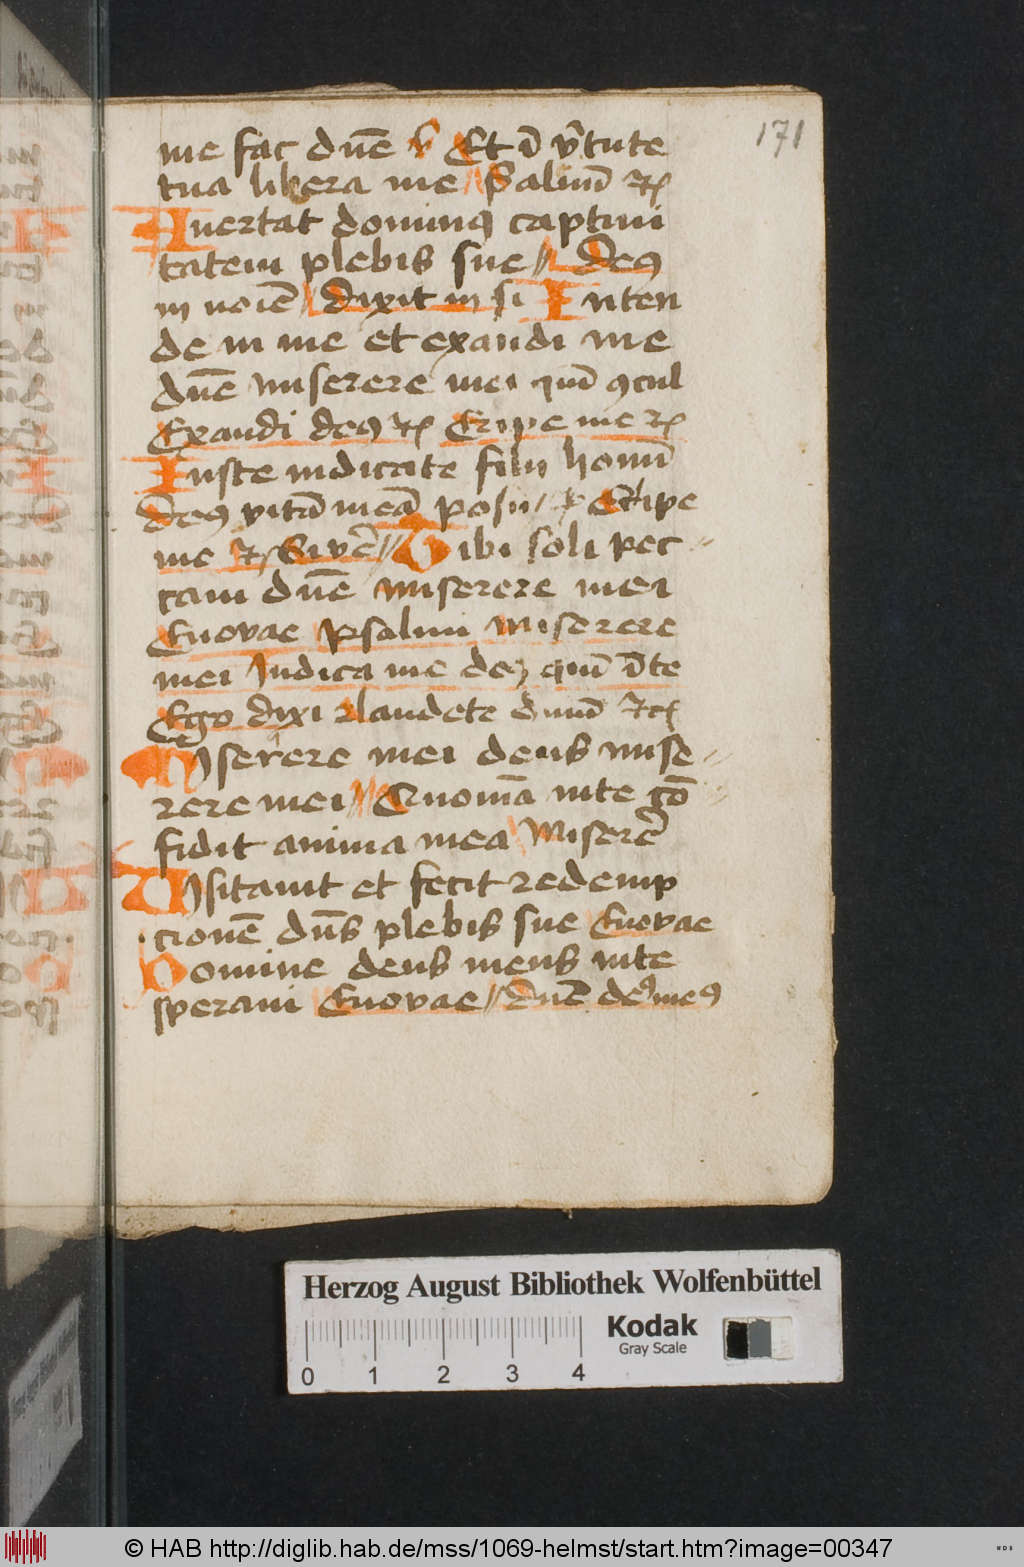 171
me fac dn̄e v̄ Et ī v̄tute
tua libera me Salmū ꝛc̄
Auertat dominꝰ captiui
tatem plebis sue // Deꝰ
in noīe // dixit in si Inten
de in me et exaudi me
dn̄e miserere mei qm̄ ꝯcul
Exaudi deꝰ ꝛc̄ Eripe me ꝛc̄
Iuste iudicate filii homī
Deꝰ vitā meā posui Eripe
me ꝛc̄ Si vē // Tibi soli pec
caui dn̄e miserere mei
Euovae psalmi Miserere
mei Iudica me deꝰ qm̄ ī te
Ego dixi laudete dnm̄ ꝛc̄
Miserere mei deus mise
rere mei // Quoniā in te ꝯ̄
fidit anima mea Miserē
Visitauit et fecit redemp
cionē dn̄s plebis sue Euovae
Domine deus meus in te
speraui Euovae // Dn̄e deꝰ meꝰ
Herzog August Bibliothek Wolfenbüttel
Kodak
Gray Scale
0 1 2 3 4
© HAB http://diglib.hab.de/mss/1069-helmst/start.htm?image=00347